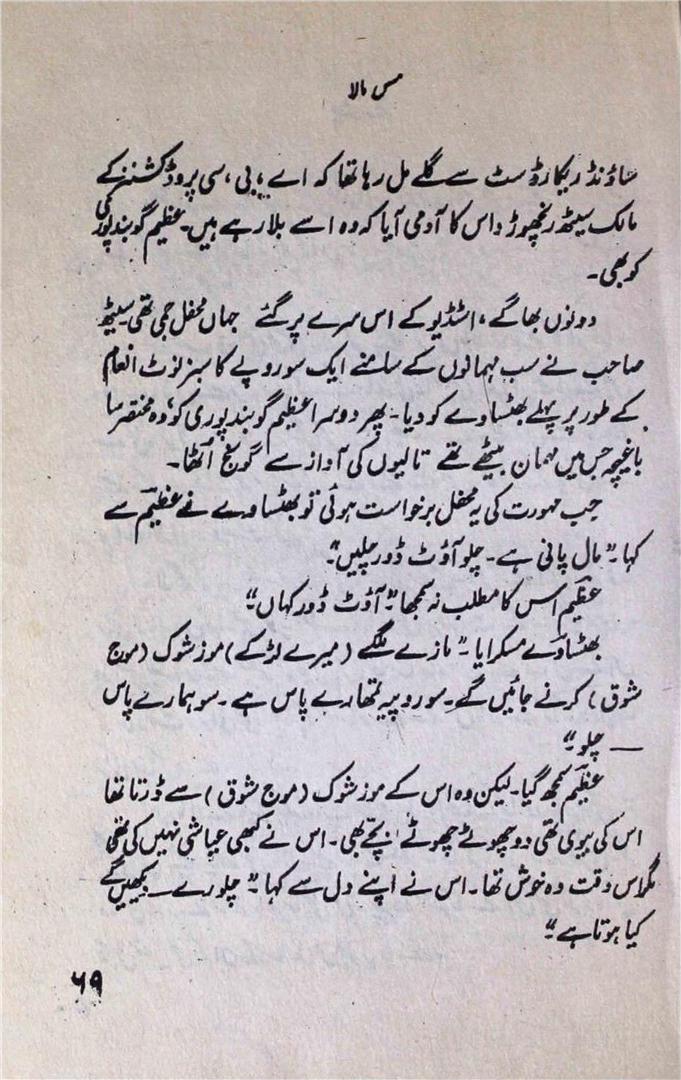 مس مالا
ساؤنڈ ریکارڈسٹ سے گلے مل رہا تھا کہ اے، بی، سی پروڈکشنز کے
مالک سیٹھ رنچھوڑ داس کا آدمی آیا کہ وہ اسے بلا رہے ہیں۔ عظیم گوبند پوری
کو بھی۔
دونوں بھاگے، اسٹڈیو کے اس سرے پر گئے جہاں محفل جمی تھی۔ سیٹھ
صاحب نے سب مہمانوں کے سامنے ایک سو روپے کا سبز نوٹ انعام
کے طور پر پہلے بھٹساوے کو دیا۔ پھر دوسرا عظیم گوبند پوری کو، وہ مختصر سا
باغیچہ جس میں مہمان بیٹھے تھے تالیوں کی آواز سے گونج اٹھا۔
جب مہورت کی یہ محفل برخواست ہوئی تو بھٹساوے نے عظیم سے
کہا۔ "مال پانی ہے۔ چلو آؤٹ ڈور چلیں"۔
عظیم اس کا مطلب نہ سمجھا۔ "آؤٹ ڈور کہاں۔"
بھٹساوے مسکرایا۔ "مازے ملگے (میرے لڑکے) موز شوک (موج
شوق) کرنے جائیں گے۔ سو روپیہ تمھارے پاس ہے۔ سو ہمارے پاس
— چلو۔"
عظیم سمجھ گیا۔ لیکن وہ اس کے موز شوک (موج شوق) سے ڈرتا تھا
اس کی بیوی تھی دو چھوٹے چھوٹے بچے بھی۔ اس نے کبھی عیاشی نہیں کی تھی
مگر اس وقت وہ خوش تھا۔ اس نے اپنے دل سے کہا۔ "چلو رے — دیکھیں گے
کیا ہوتا ہے۔"
۶۹